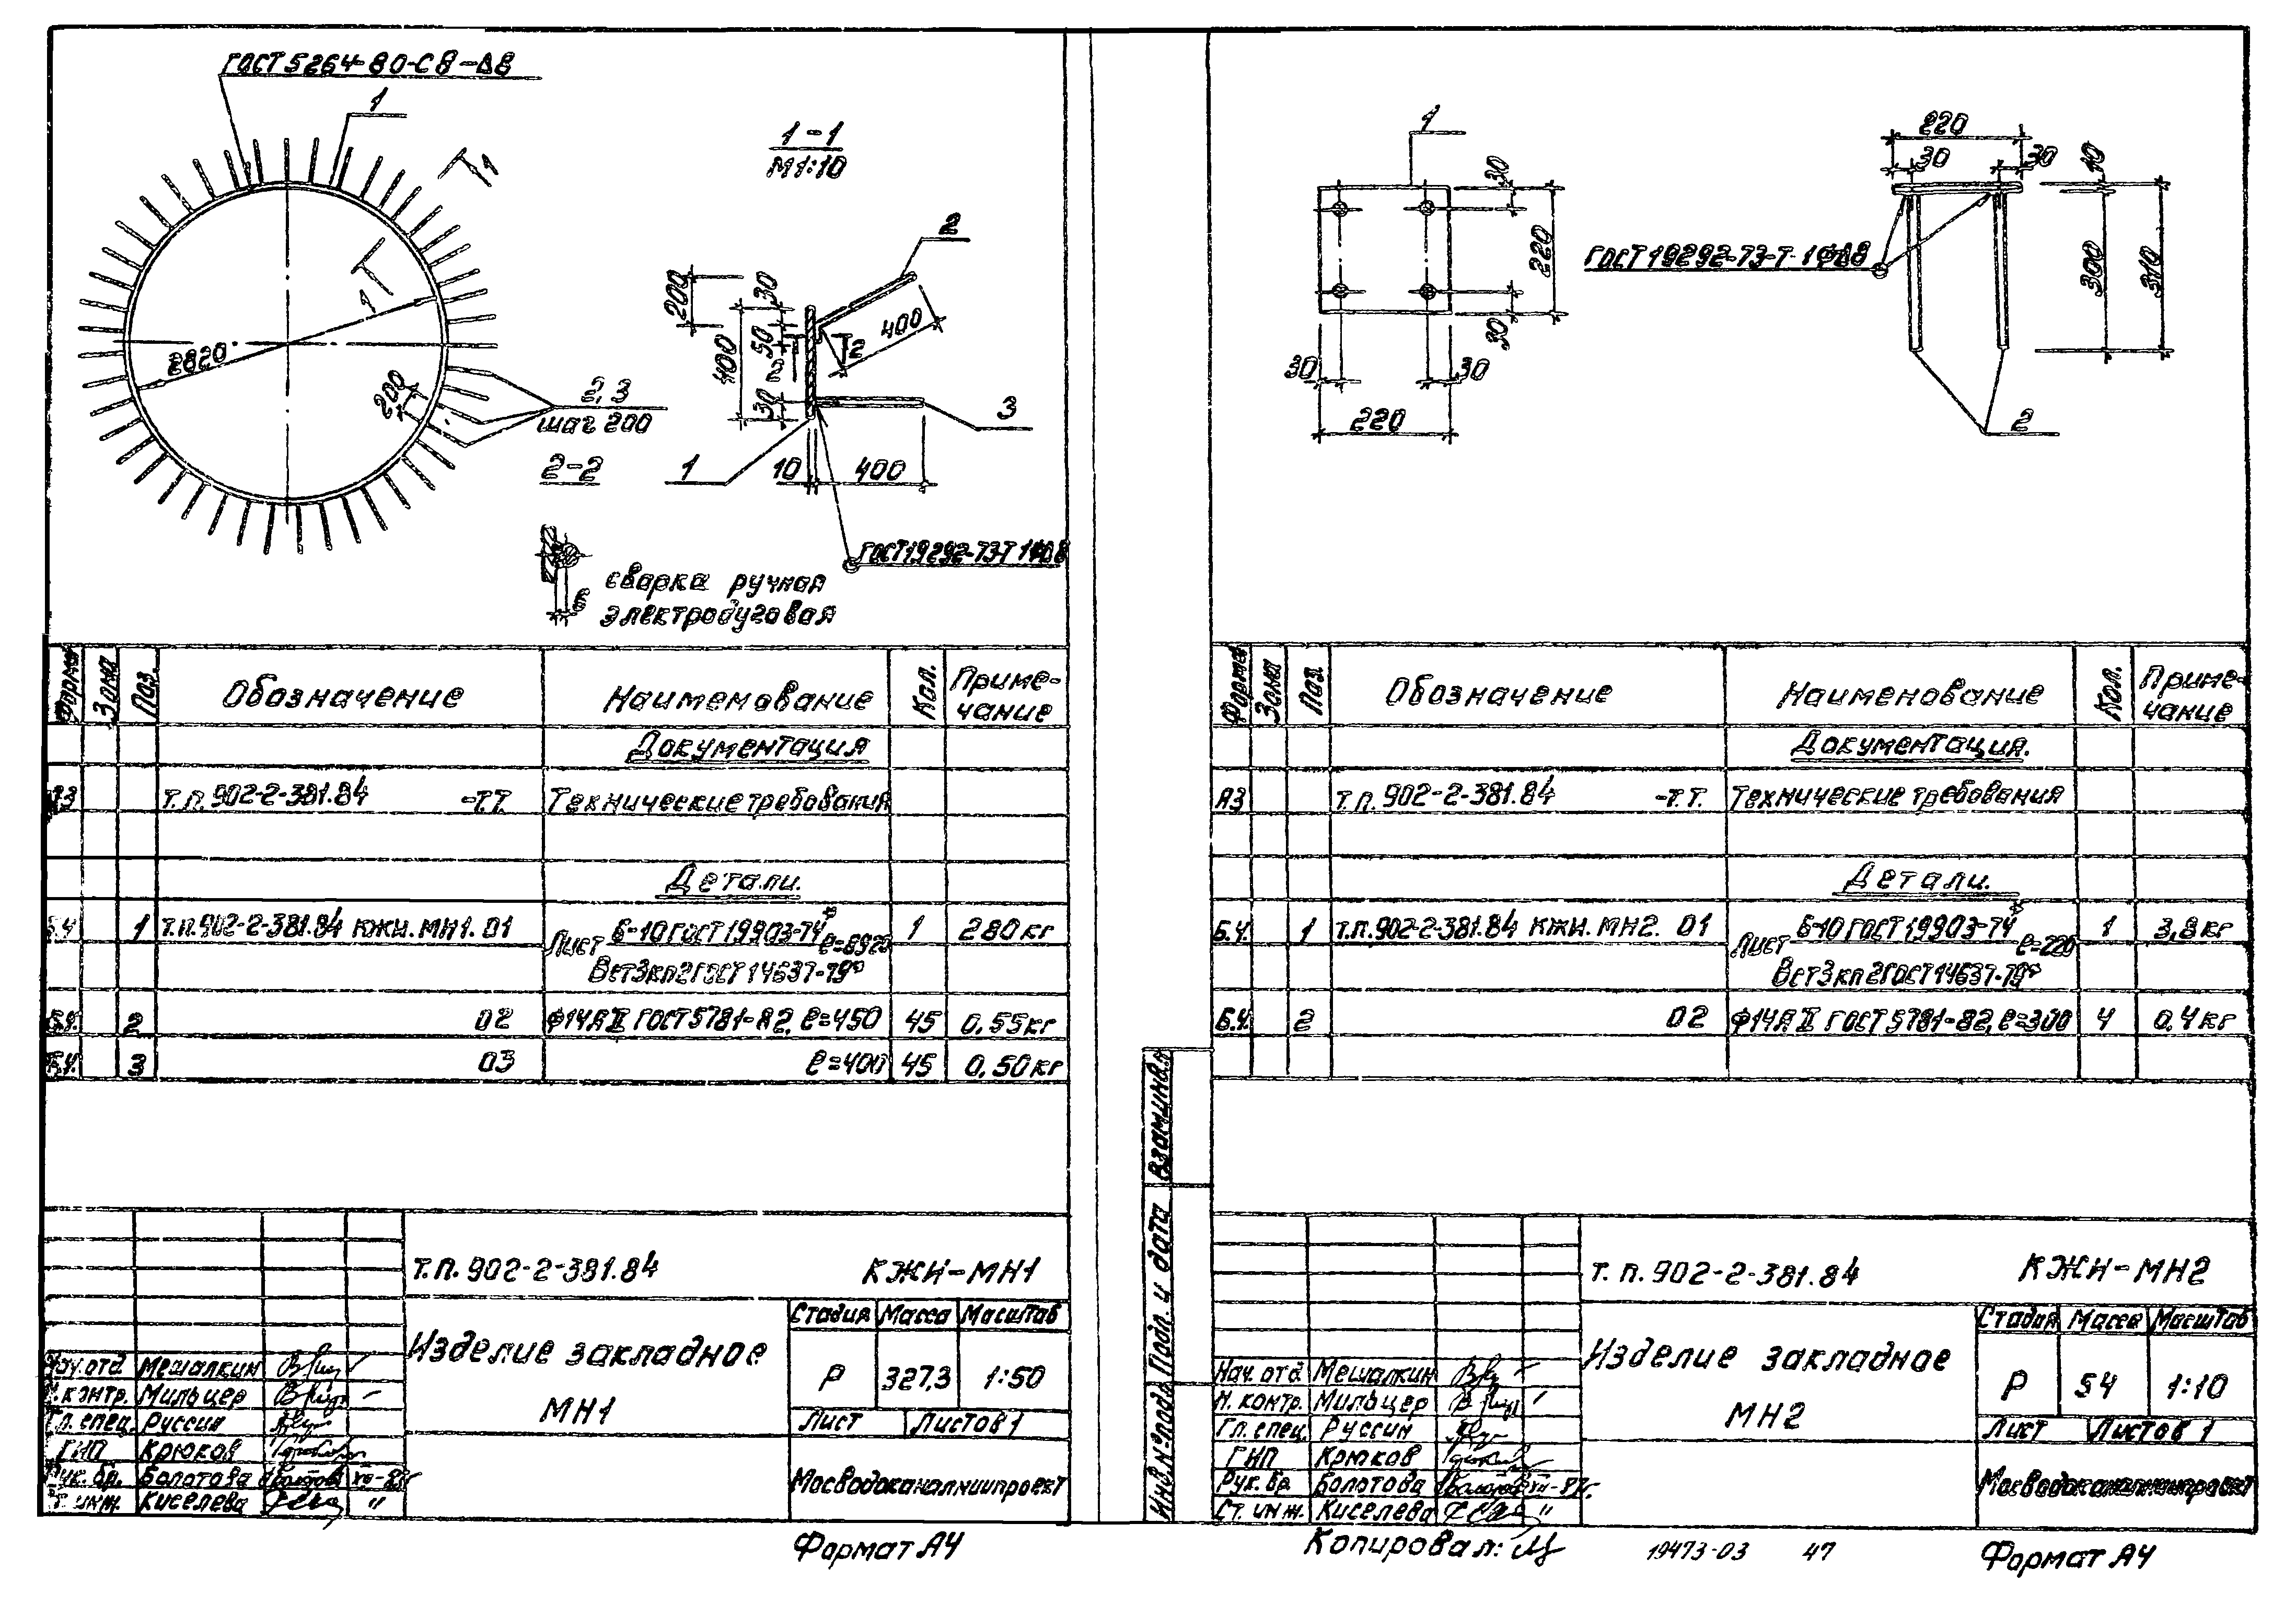 ГОСТ 5264-80-С8-Δ8
1
1
1
2820
200
2,3
шаг 200
1-1
М1:10
2
200
30
400
50
2
2
400
30
3
1
10
400
2-2
6
ГОСТ 19292-73-Т-1ФΔ8
сварка ручная
электродуговая
Зона
Поз.
Обозначение
Наименование
Кол.
Приме-
чание
Документация
А3
т.п.902-2-381.84 -т.т.
Технические требования
Детали.
Б.Ч. 1 т.п.902-2-381.84 КЖИ.МН1.01
Лист Б-10 ГОСТ 19903-74* ℓ=8920
1
280кг
Вст3кп2 ГОСТ 14637-79*
Б.Ч. 2 02 Ф14АⅡ ГОСТ 5781-82, ℓ=450 45 0,55кг
Б.Ч. 3 03 ℓ=400 45 0,50кг
Т.П. 902-2-381.84 КЖИ-МН1
Изделие закладное
МН1
Стадия Масса Масштаб
Р 327,3 1:50
Лист Листов 1
Мосводоканалниипроект
Нач.отд. Мешалкин
Н.контр. Мильцер
Гл.спец. Руссин
ГИП Крюков
Рук.бр. Болотова
Ст.инж. Киселева "
Формат А4
1
30
220
30
30
30
220
220
30
30
10
ГОСТ 19292-73-Т-1ФΔ8
300
310
2
Зона
Поз.
Обозначение
Наименование
Кол.
Приме-
чание
Документация.
А3 т.п.902-2-381.84 -т.т. Технические требования
Детали.
Б.Ч. 1 т.п.902-2-381.84 КЖИ.МН2. 01
Лист Б-10 ГОСТ 19903-74* ℓ=220
1
3,8кг
Вст3кп2 ГОСТ 14637-79*
Б.Ч. 2 02 Ф14АⅡ ГОСТ 5781-82, ℓ=300 4 0,4кг
Взам.инв.№
Подп. и дата
Инв.№ подл.
Т.П. 902-2-381.84 КЖИ-МН2
Изделие закладное
МН2
Стадия Масса Масштаб
Р 54 1:10
Лист Листов 1
Мосводоканалниипроект
Нач.отд. Мешалкин
Н.контр. Мильцер
Гл.спец. Руссин
ГИП Крюков
Рук.бр. Болотова
Ст.инж. Киселева "
Копировал:
19473-03 47
Формат А4